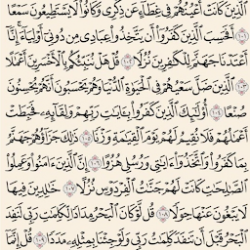 ٱلَّذِينَ كَانَتْ أَعْيُنُهُمْ فِي غِطَآءٍ عَن ذِكْرِي وَكَانُوا۟ لَا يَسْتَطِيعُونَ سَمْعًا
١٠١ أَفَحَسِبَ ٱلَّذِينَ كَفَرُوٓا۟ أَن يَتَّخِذُوا۟ عِبَادِي مِن دُونِيٓ أَوْلِيَآءَ ۚ إِنَّآ
أَعْتَدْنَا جَهَنَّمَ لِلْكَٰفِرِينَ نُزُلًا ١٠٢ قُلْ هَلْ نُنَبِّئُكُم بِٱلْأَخْسَرِينَ أَعْمَٰلًا
١٠٣ ٱلَّذِينَ ضَلَّ سَعْيُهُمْ فِي ٱلْحَيَوٰةِ ٱلدُّنْيَا وَهُمْ يَحْسَبُونَ أَنَّهُمْ يُحْسِنُونَ
صُنْعًا ١٠٤ أُو۟لَٰٓئِكَ ٱلَّذِينَ كَفَرُوا۟ بِـَٔايَٰتِ رَبِّهِمْ وَلِقَآئِهِۦ فَحَبِطَتْ
أَعْمَٰلُهُمْ فَلَا نُقِيمُ لَهُمْ يَوْمَ ٱلْقِيَٰمَةِ وَزْنًا ١٠٥ ذَٰلِكَ جَزَآؤُهُمْ جَهَنَّمُ
بِمَا كَفَرُوا۟ وَٱتَّخَذُوٓا۟ ءَايَٰتِي وَرُسُلِي هُزُوًا ١٠٦ إِنَّ ٱلَّذِينَ ءَامَنُوا۟ وَعَمِلُوا۟
ٱلصَّٰلِحَٰتِ كَانَتْ لَهُمْ جَنَّٰتُ ٱلْفِرْدَوْسِ نُزُلًا ١٠٧ خَٰلِدِينَ فِيهَا
لَا يَبْغُونَ عَنْهَا حِوَلًا ١٠٨ قُل لَّوْ كَانَ ٱلْبَحْرُ مِدَادًا لِّكَلِمَٰتِ رَبِّي لَنَفِدَ
ٱلْبَحْرُ قَبْلَ أَن تَنفَدَ كَلِمَٰتُ رَبِّي وَلَوْ جِئْنَا بِمِثْلِهِۦ مَدَدًا ١٠٩